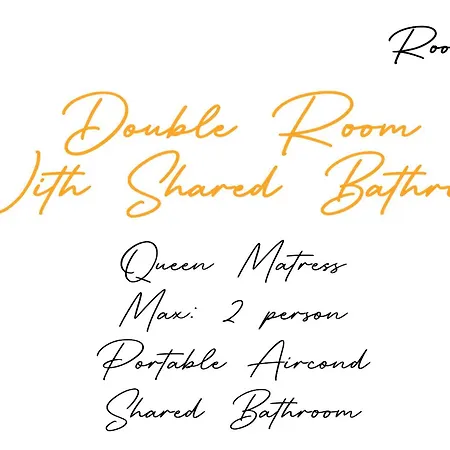 Roo
Double Room
With Shared Bathr
Queen Matress
Max: 2 person
Portable Aircond
Shared Bathroom